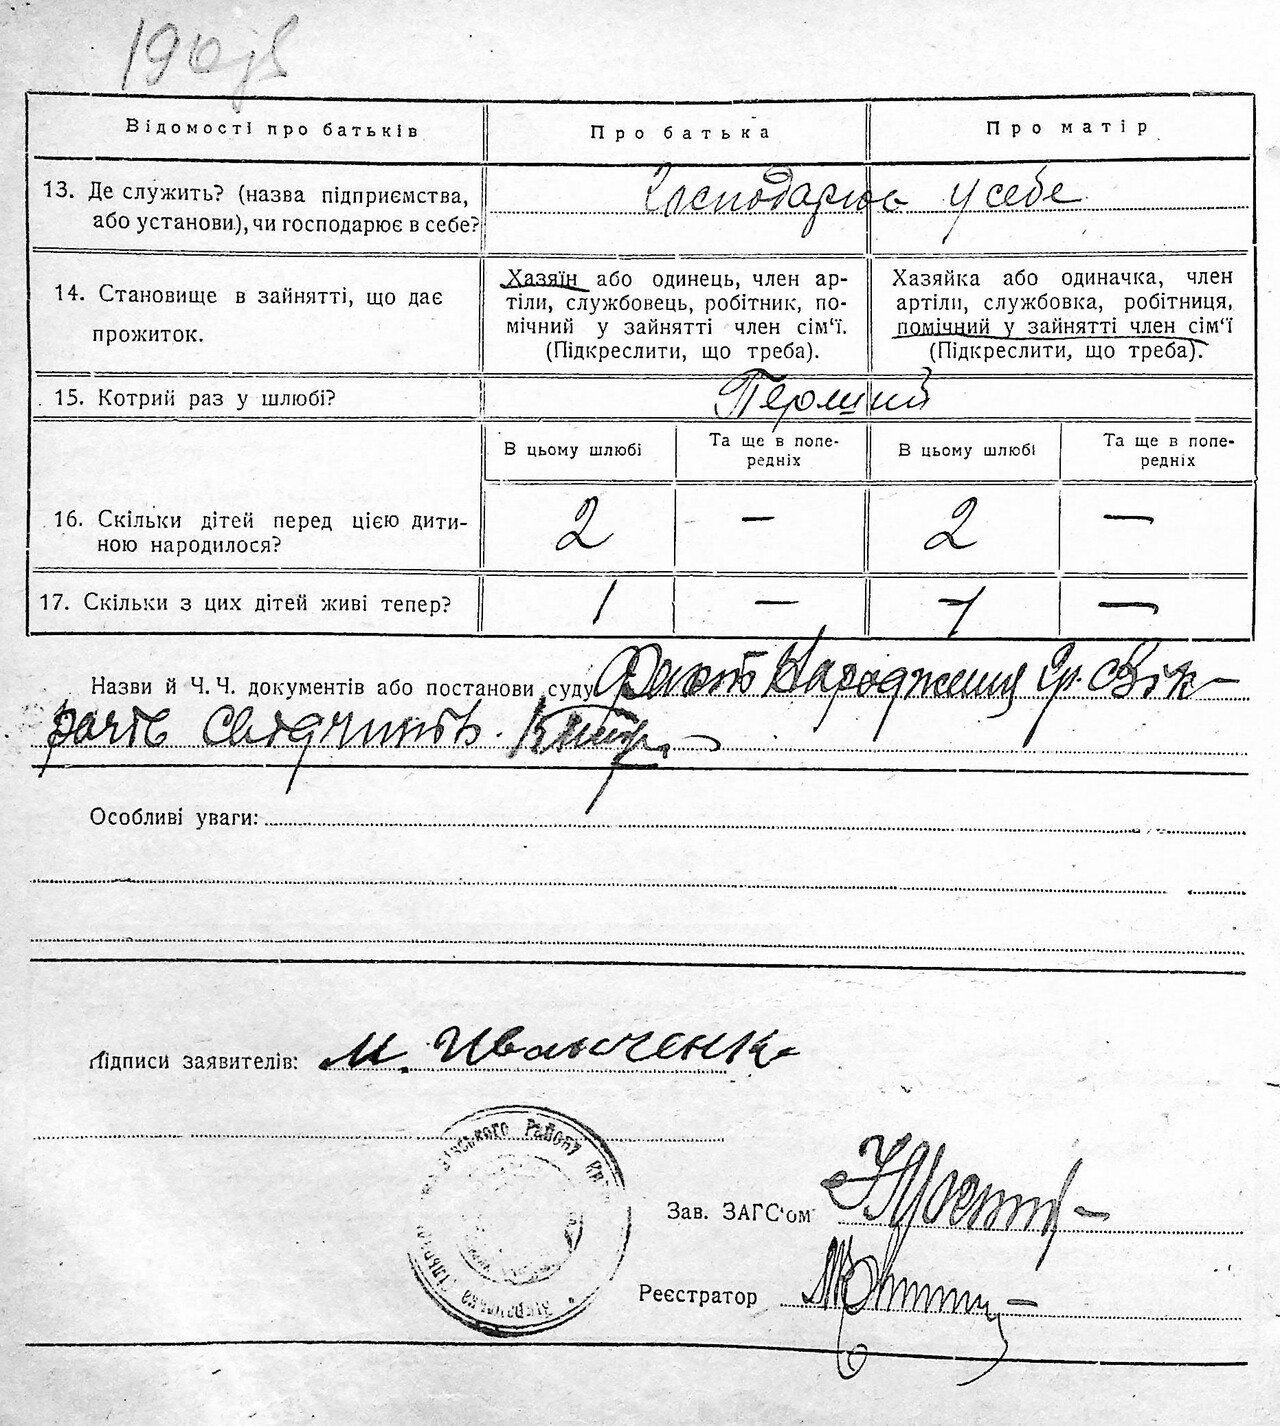 Відомості про батьків
Про батька
Про матір
13. Де служить? (назва підприємства,
або установи), чи господарює в себе?
Господарює у себе
14. Становище в зайнятті, що дає
прожиток.
Хазяїн або одинець, член ар-
тіли, службовець, робітник, по-
мічний у зайнятті член сім'ї.
(Підкреслити, що треба).
Хазяйка або одиначка, член
артіли, службовка, робітниця,
помічний у зайнятті член сім'ї
(Підкреслити, що треба).
15. Котрий раз у шлюбі?
Перший
В цьому шлюбі
Та ще в попе-
редніх
В цьому шлюбі
Та ще в попе-
редніх
16. Скільки дітей перед цією дити-
ною народилося?
2 — 2 —
17. Скільки з цих дітей живі тепер?
1 — 1 —
Назви й Ч. Ч. документів або постанови суду Факт Народження Гр.
свідчить.
Особливі уваги:
Підписи заявителів: М.
Району
Зав. ЗАГС'ом
Реєстратор